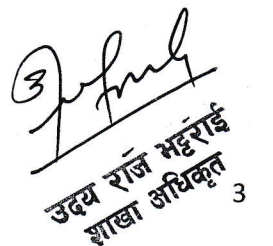 उदय राज भट्टराई
शाखा अधिकृत
3